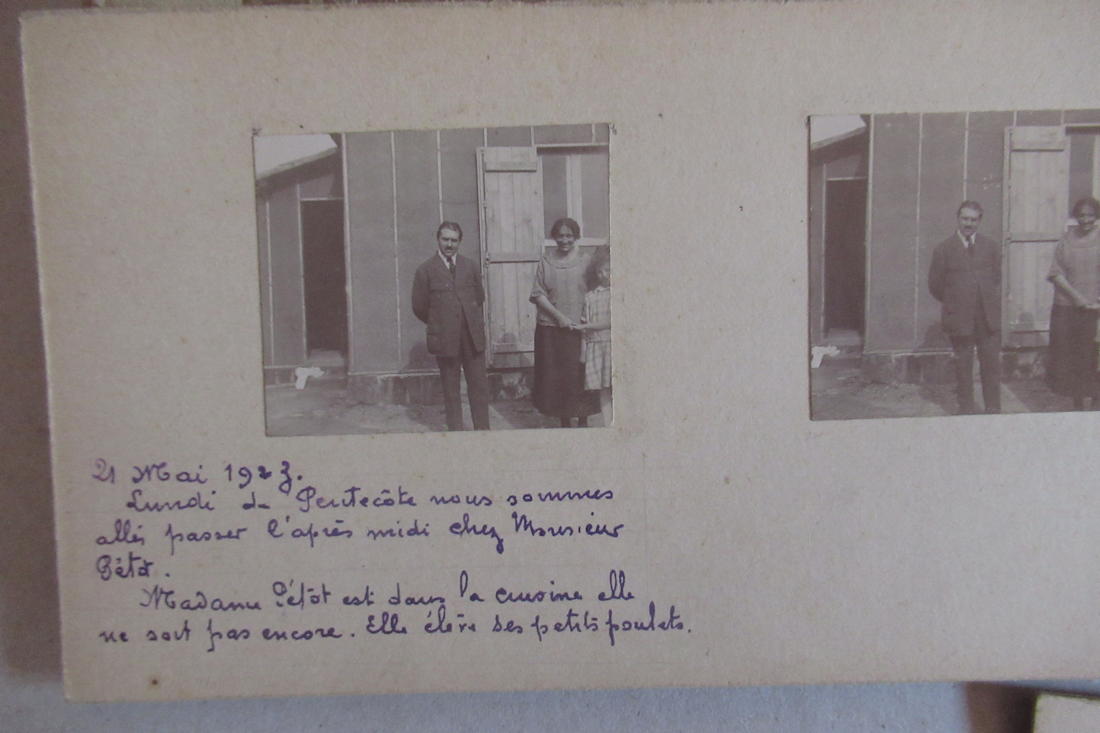 21 Mai 1923.
Lundi de Pentecôte nous sommes
allés passer l'après midi chez Monsieur
Pétot.
Madame Pétôt est dans la cuisine elle
ne sort pas encore. Elle élève des petits poulets.